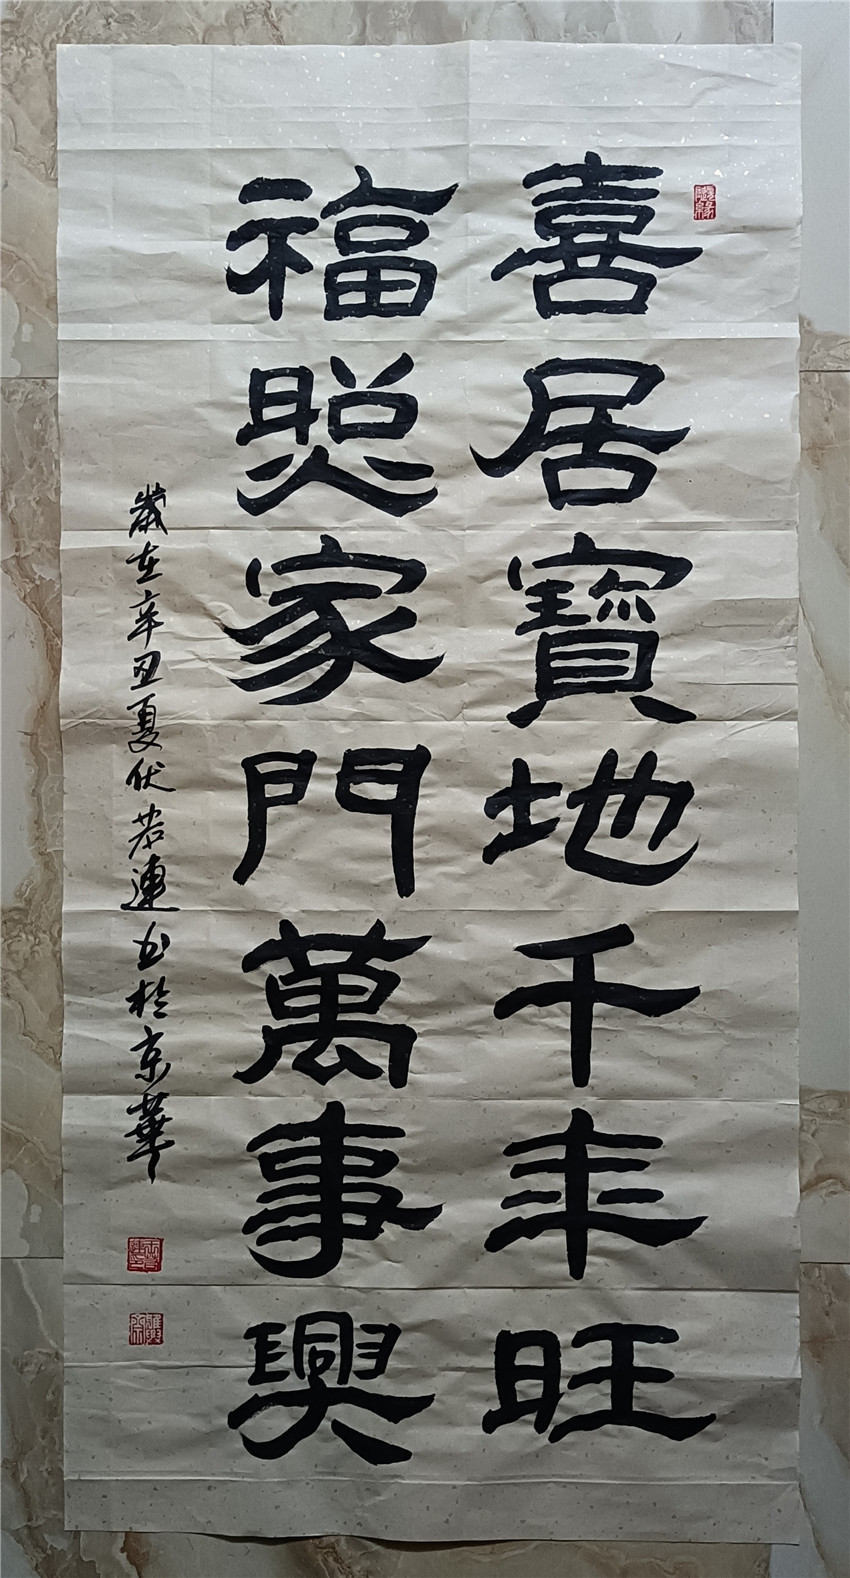 喜居寶地千年旺
福照家門萬事興
歲在辛丑夏伏若連书於京華